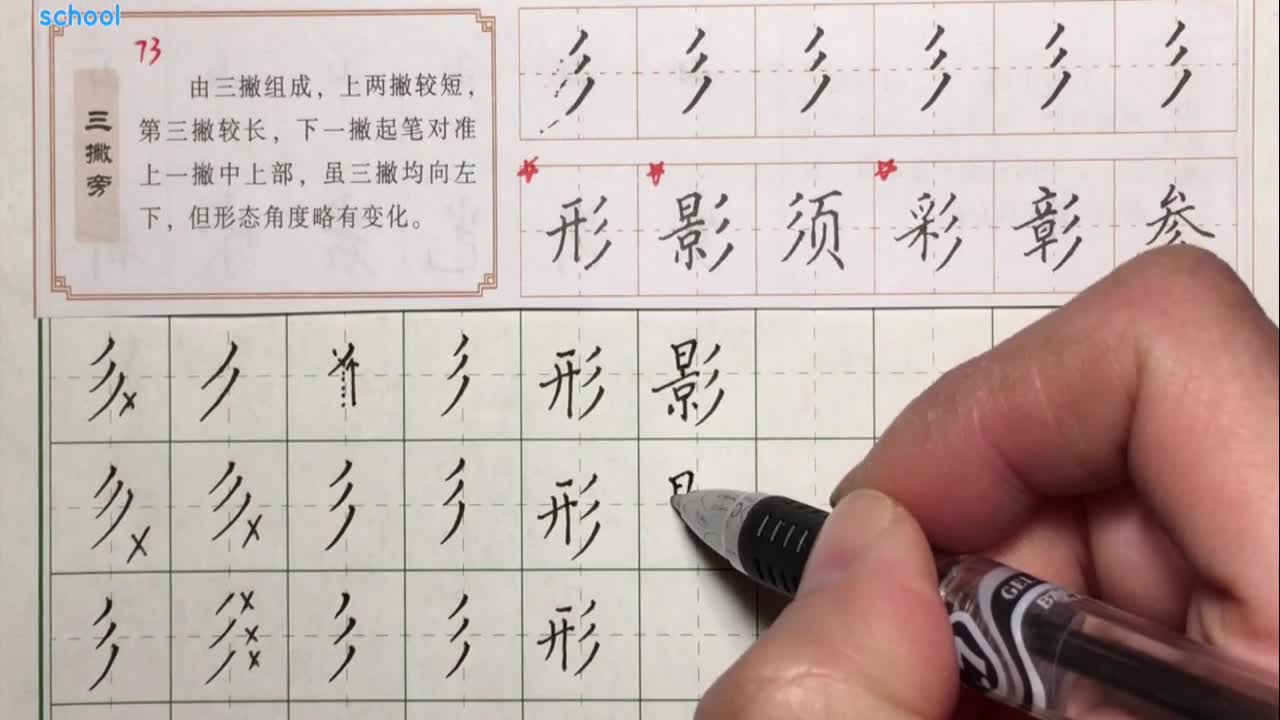 school
73
三撇旁
由三撇组成，上两撇较短，
第三撇较长，下一撇起笔对准
上一撇中上部，虽三撇均向左
下，但形态角度略有变化。
彡 彡 彡 彡 彡 彡
形 影 须 彩 彰 参
彡 彡 形 影
彡 彡 彡 彡 形
彡 彡 彡 彡 形
GEL